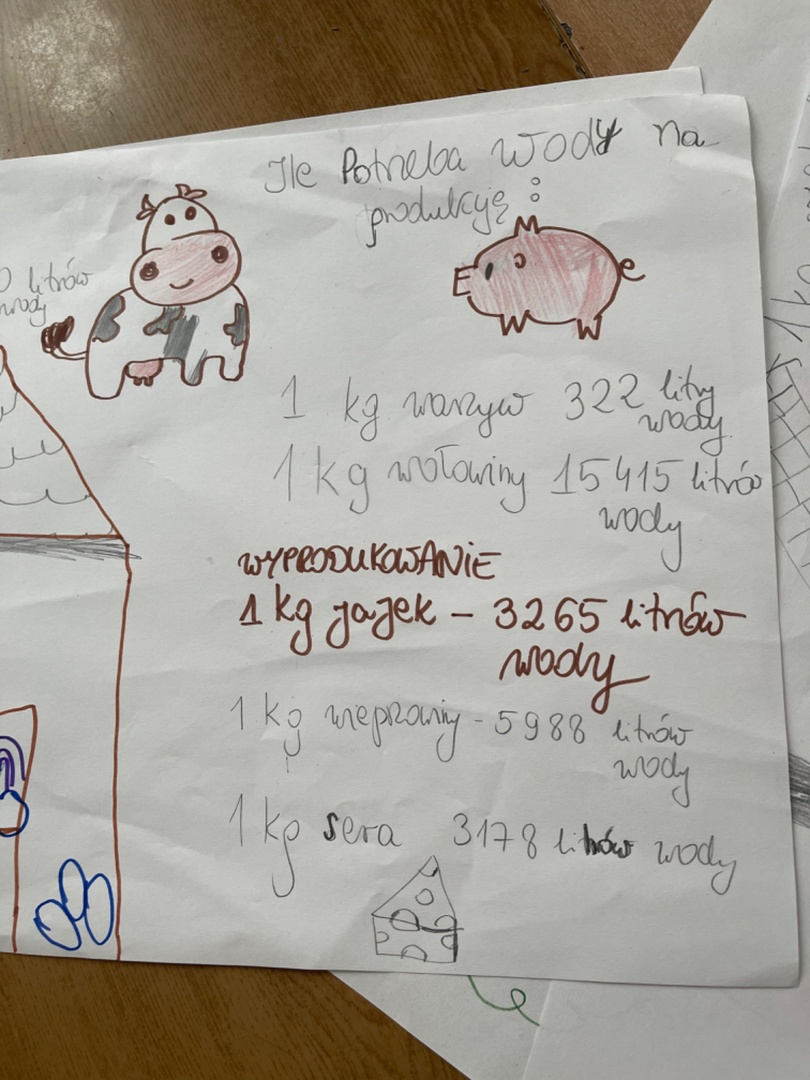 Ile Potrzeba wody na
produkcję :
litrów
wody
1 kg warzyw 322 litry
wody
1 kg wołowiny 15415 litrów
wody
WYPRODUKOWANIE
1 kg jajek - 3265 litrów
wody
1 kg wieprzowiny - 5988 litrów
wody
1 kg sera 3178 litrów wody